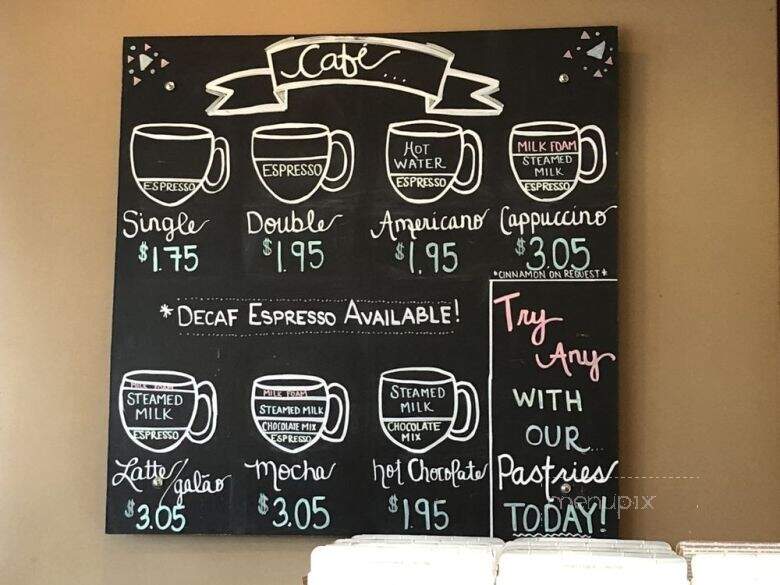 Café...
ESPRESSO
Single
$1.75
ESPRESSO
Double
$1.95
HOT
WATER
ESPRESSO
Americano
$1.95
MILK FOAM
STEAMED
MILK
ESPRESSO
Cappuccino
$3.05
*CINNAMON ON REQUEST*
* DECAF ESPRESSO AVAILABLE!
MILK FOAM
STEAMED
MILK
ESPRESSO
Latte/galão
$3.05
MILK FOAM
STEAMED MILK
CHOCOLATE MIX
ESPRESSO
Mocha
$3.05
STEAMED
MILK
CHOCOLATE
MIX
hot Chocolate
$1.95
Try
Any
WITH
OUR...
Pastries
TODAY!
menupix